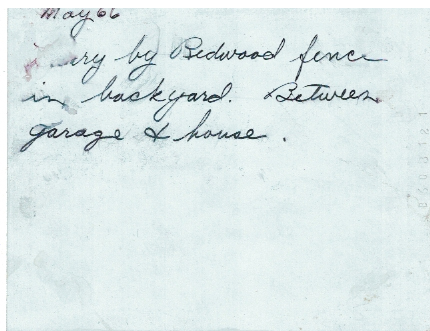 May 66
by Redwood fence
in backyard. Between
garage & house.